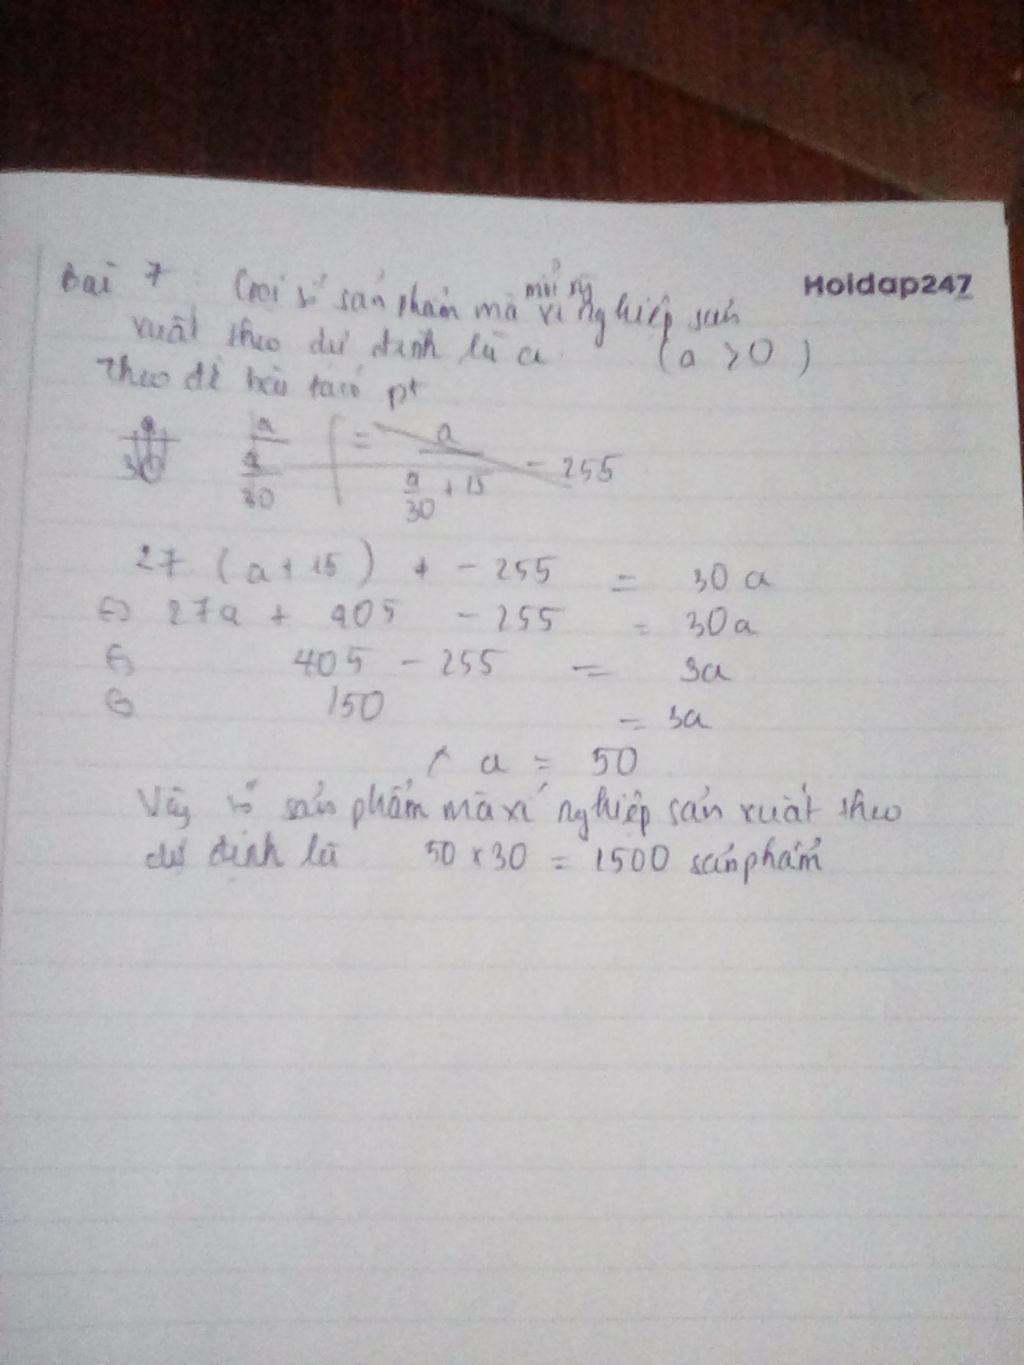 Bài 7 Gọi số sản phẩm mà mỗi ng xí nghiệp sản
Hoidap247
xuất theo dự định là a (a > 0)
Theo đề bài ta có pt
a
30
a
a
30
= a
a
30 + 15
- 255
27 (a + 15) + - 255 = 30a
<=> 27a + 405 - 255 = 30a
<=> 405 - 255 = 3a
<=> 150 = 3a
a = 50
Vậy số sản phẩm mà xí nghiệp sản xuất theo
dự định là 50 x 30 = 1500 sản phẩm